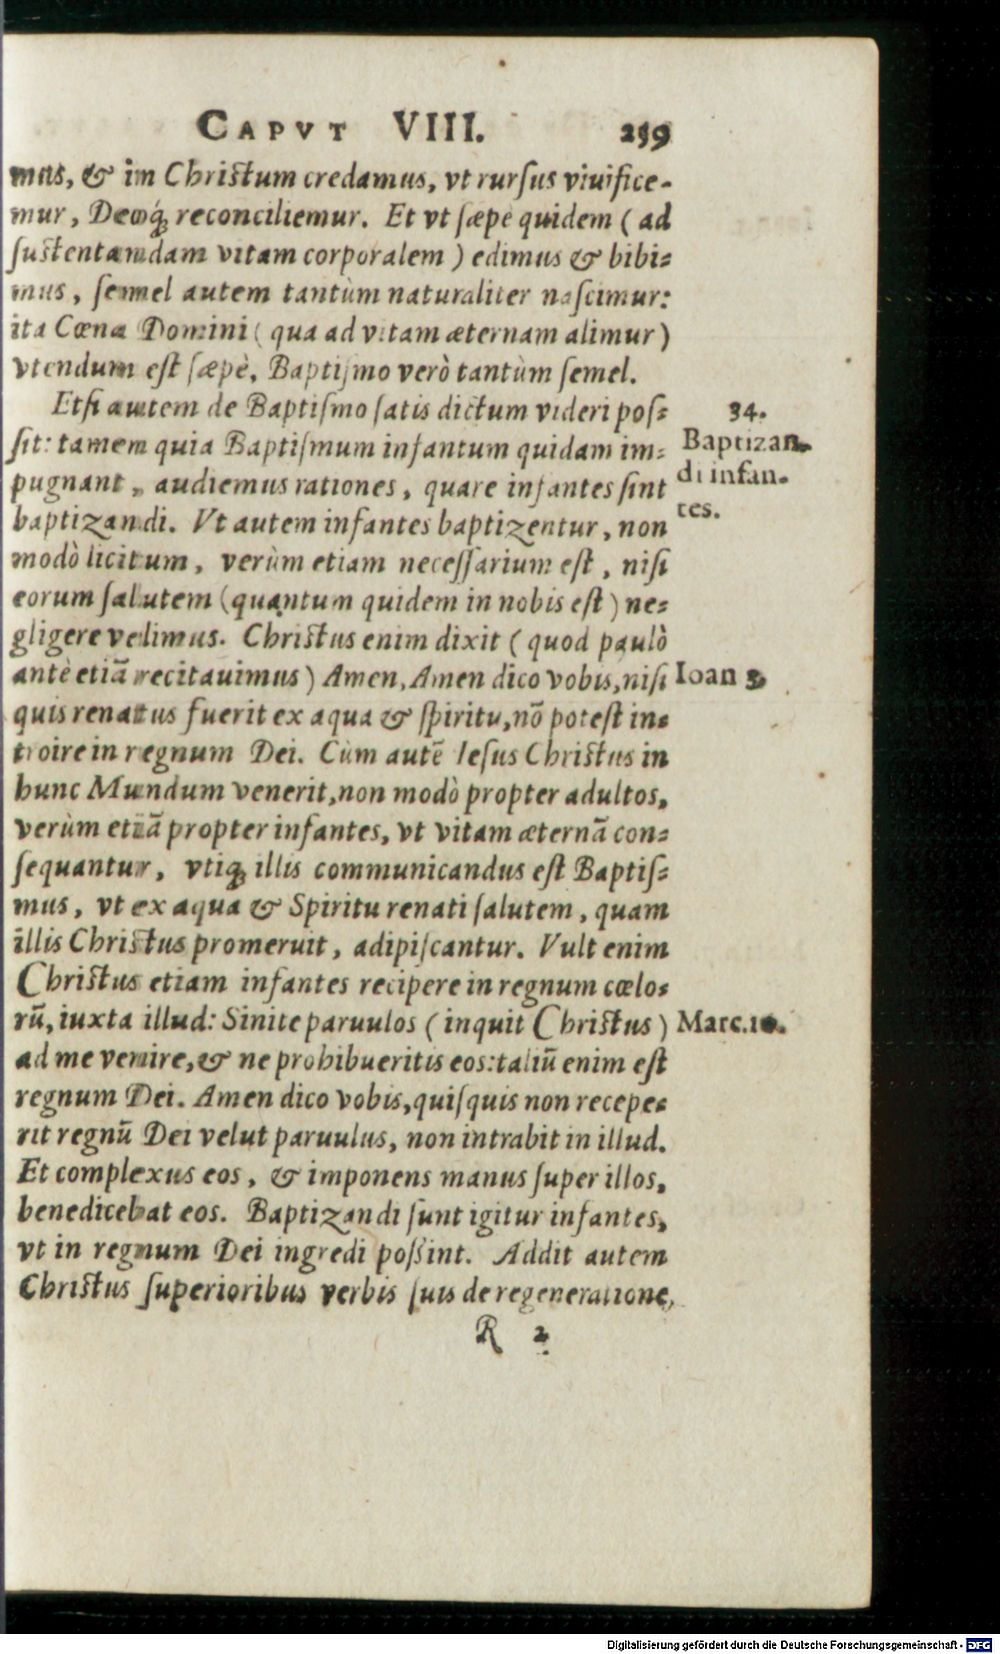 CAPVT VIII. 259
mus, & in Christum credamus, vt rursus viuifice-
mur, Deoq́; reconciliemur. Et vt sæpe quidem (ad
sustentandam vitam corporalem) edimus & bibi-
mus, semel autem tantùm naturaliter nascimur:
ita Cœna Domini (qua ad vitam æternam alimur)
vtendum est sæpè, Baptismo verò tantùm semel.
Etsi autem de Baptismo satis dictum videri pos-
sit: tamen quia Baptismum infantum quidam im-
pugnant, audiemus rationes, quare infantes sint
baptizandi. Vt autem infantes baptizentur, non
modò licitum, verùm etiam necessarium est, nisi
eorum salutem (quantum quidem in nobis est) ne-
gligere velimus. Christus enim dixit (quod paulò
antè etiā recitauimus) Amen, Amen dico vobis, nisi
quis renatus fuerit ex aqua & spiritu, nō potest in-
troire in regnum Dei. Cùm autē Iesus Christus in
hunc Mundum venerit, non modò propter adultos,
verùm etiā propter infantes, vt vitam æternā con-
sequantur, vtiq; illis communicandus est Baptis-
mus, vt ex aqua & Spiritu renati salutem, quam
illis Christus promeruit, adipiscantur. Vult enim
Christus etiam infantes recipere in regnum cœlo-
rū, iuxta illud: Sinite paruulos (inquit Christus)
ad me venire, & ne prohibueritis eos: taliū enim est
regnum Dei. Amen dico vobis, quisquis non recepe-
rit regnū Dei velut paruulus, non intrabit in illud.
Et complexus eos, & imponens manus super illos,
benedicebat eos. Baptizandi sunt igitur infantes,
vt in regnum Dei ingredi possint. Addit autem
Christus superioribus verbis suis de regeneratione,
R 2
34.
Baptizan-
di infan-
tes.
Ioan 3.
Marc. 10.
Digitalisierung gefördert durch die Deutsche Forschungsgemeinschaft - DFG